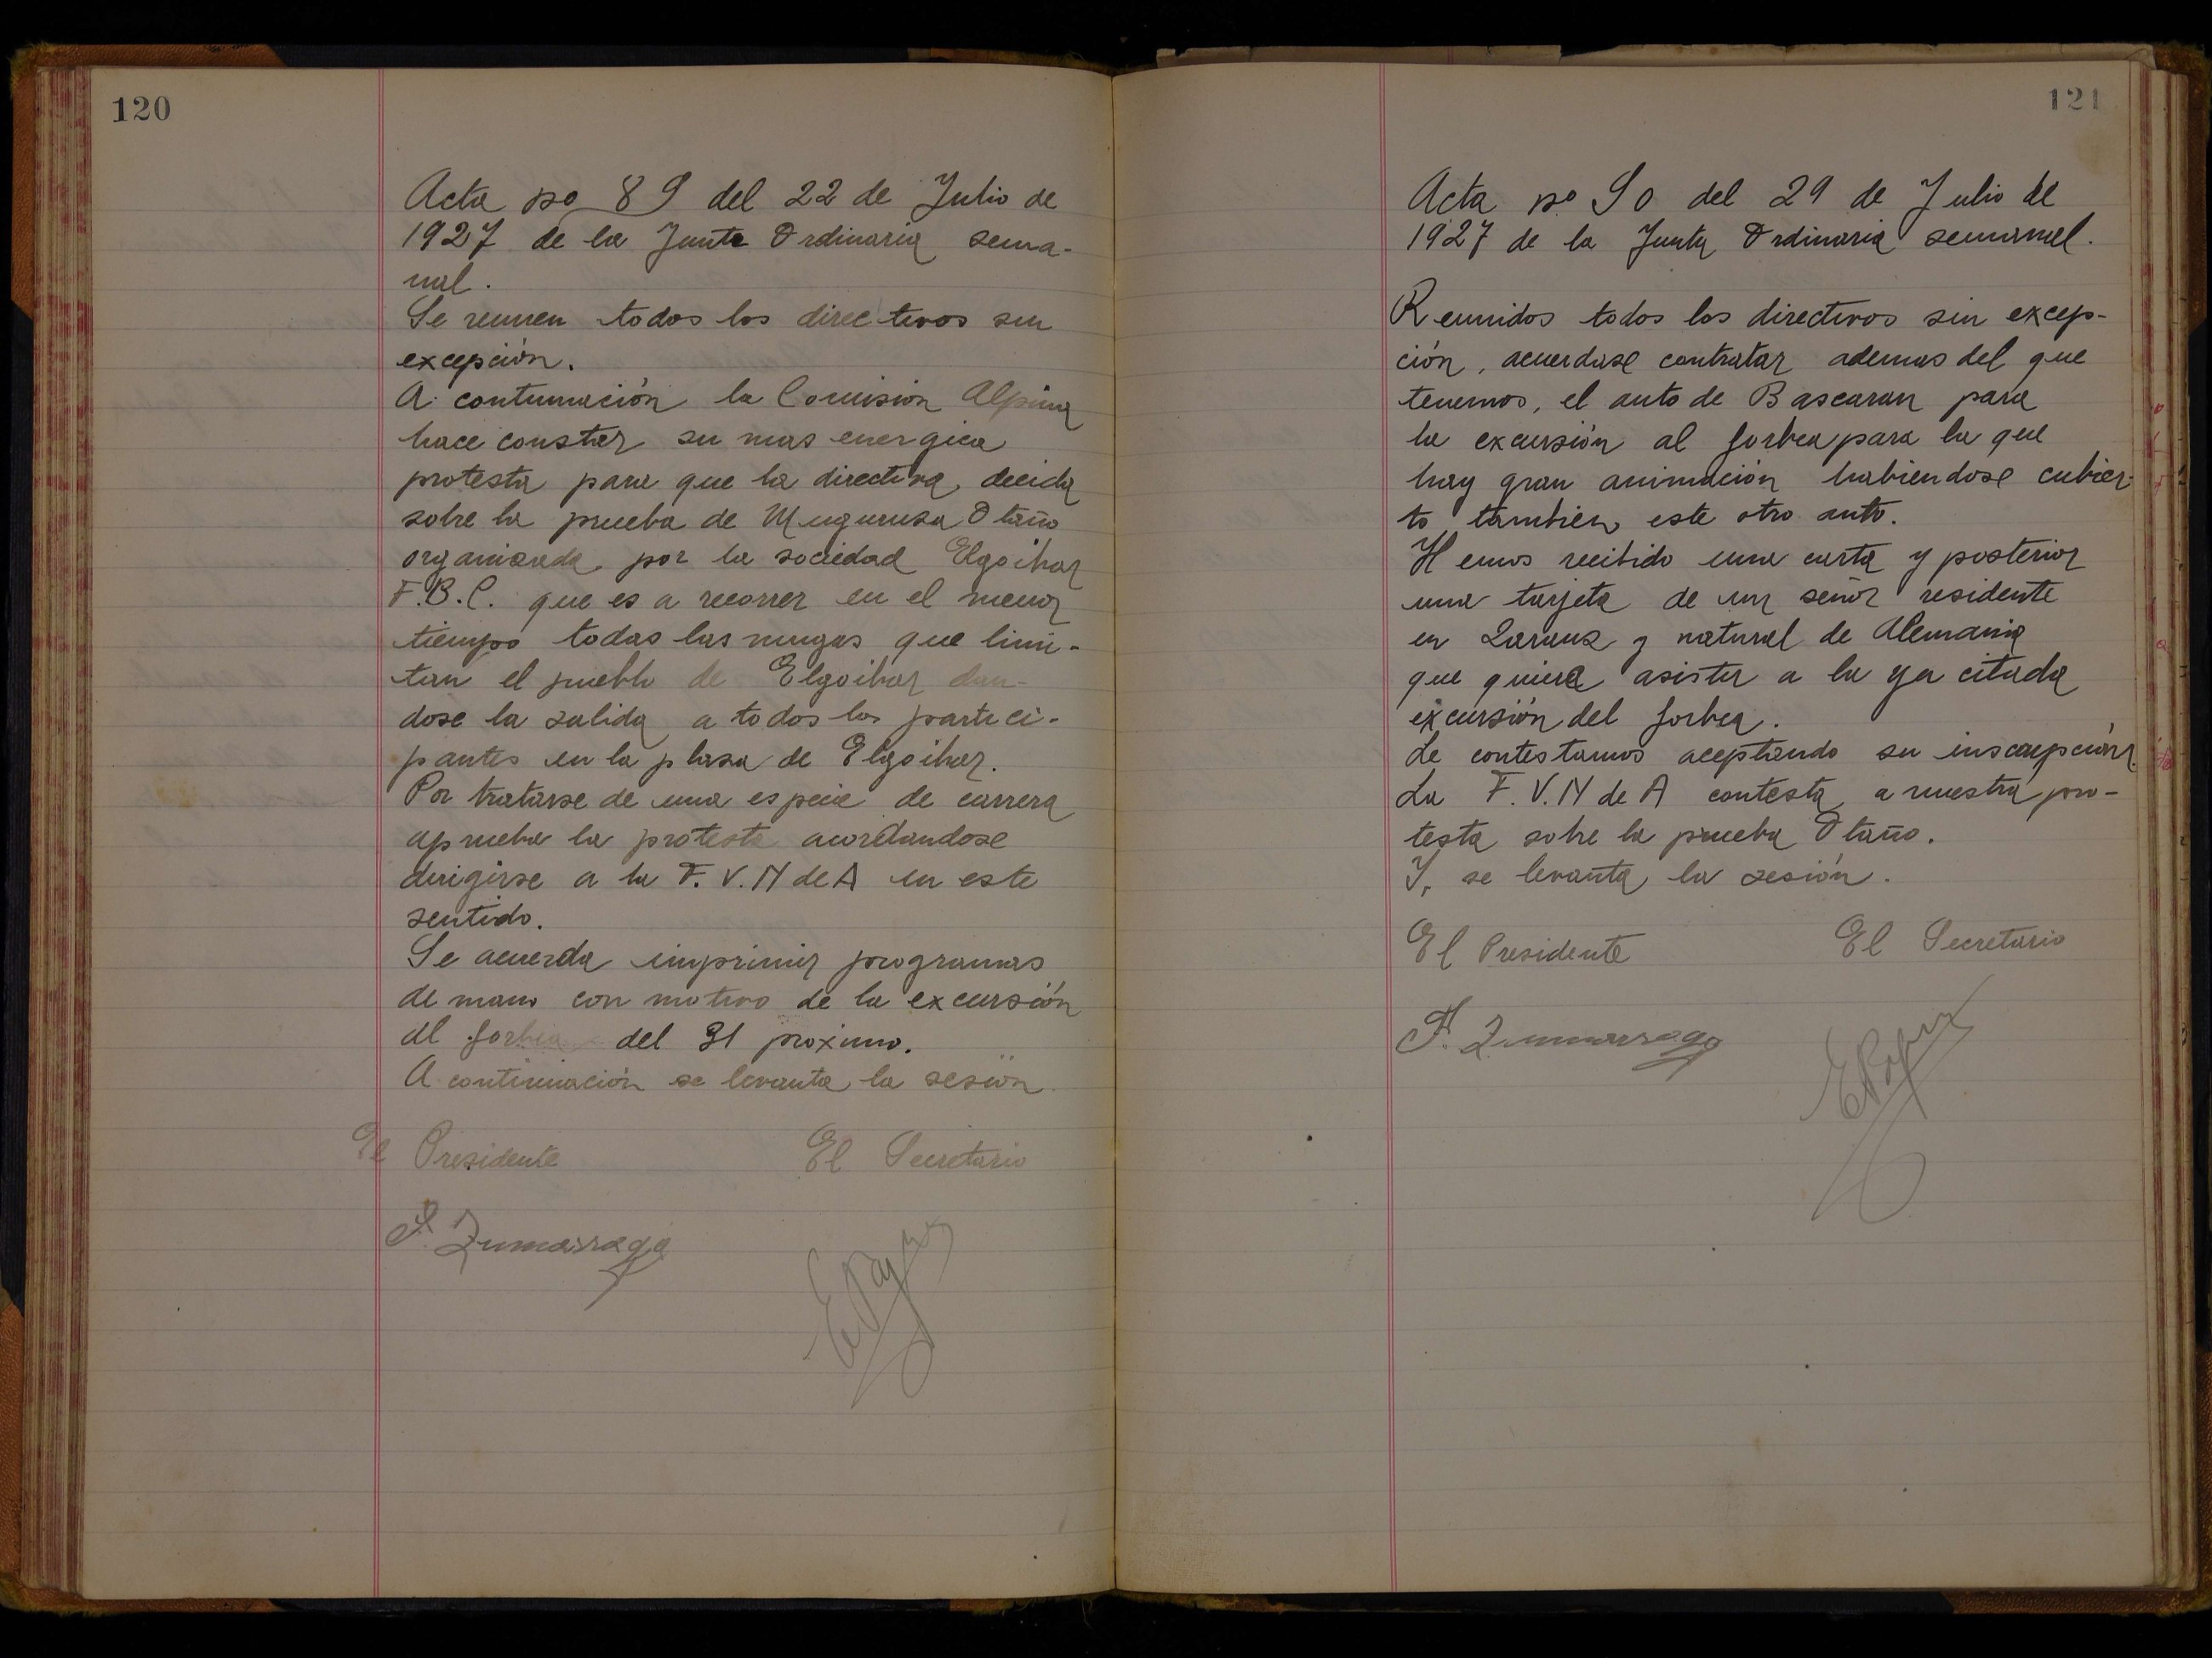 120
Acta no 89 del 22 de Julio de
1927 de la Junta Ordinaria sema-
nal.
Se reunen todos los directivos sin
excepción.
A continuación la Comision Alpina
hace constar su mas energica
protesta para que la directiva, decida
sobre la prueba de Muguruza Otaño
organizada por la sociedad Elgoibar
F.B.C. que es a recorrer en el menor
tiempo todas las mugas que limi-
tan el pueblo de Elgoibar dan-
dose la salida a todos los partici-
pantes en la plaza de Elgoibar.
Por tratarse de una especie de carrera
aprueba la protesta acordandose
dirigirse a la F. V. N de A en este
sentido.
Se acuerda imprimir programas
de mano con motivo de la excursión
al Gorbea del 31 proximo.
A continuación se levanta la sesión.
El Presidente El Secretario
F. Zumarraga
121
Acta no 90 del 29 de Julio de
1927 de la Junta Ordinaria semanal.
Reunidos todos los directivos sin excep-
ción, acuerdase contratar ademas del que
tenemos, el auto de Bascaran para
la excursión al Gorbea para la que
hay gran animación habiendose cubier-
to tambien este otro auto.
Hemos recibido una carta y posterior
una tarjeta de un señor residente
en Zarauz y natural de Alemania
que quiere asistir a la ya citada
excursión del Gorbea.
Le contestamos aceptando su inscripción.
La F. V. N de A contesta a nuestra pro-
testa sobre la prueba Otaño.
Y, se levanta la sesión.
El Presidente El Secretario
F. Zumarraga